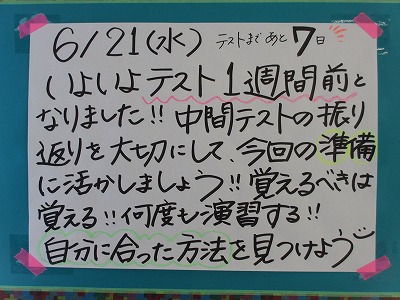 6/21(水) テストまであと7日
いよいよテスト1週間前と
なりました!! 中間テストの振り
返りを大切にして、今回の準備
に活かしましょう!! 覚えるべきは
覚える!! 何度も演習する!!
自分に合った方法を見つけよう